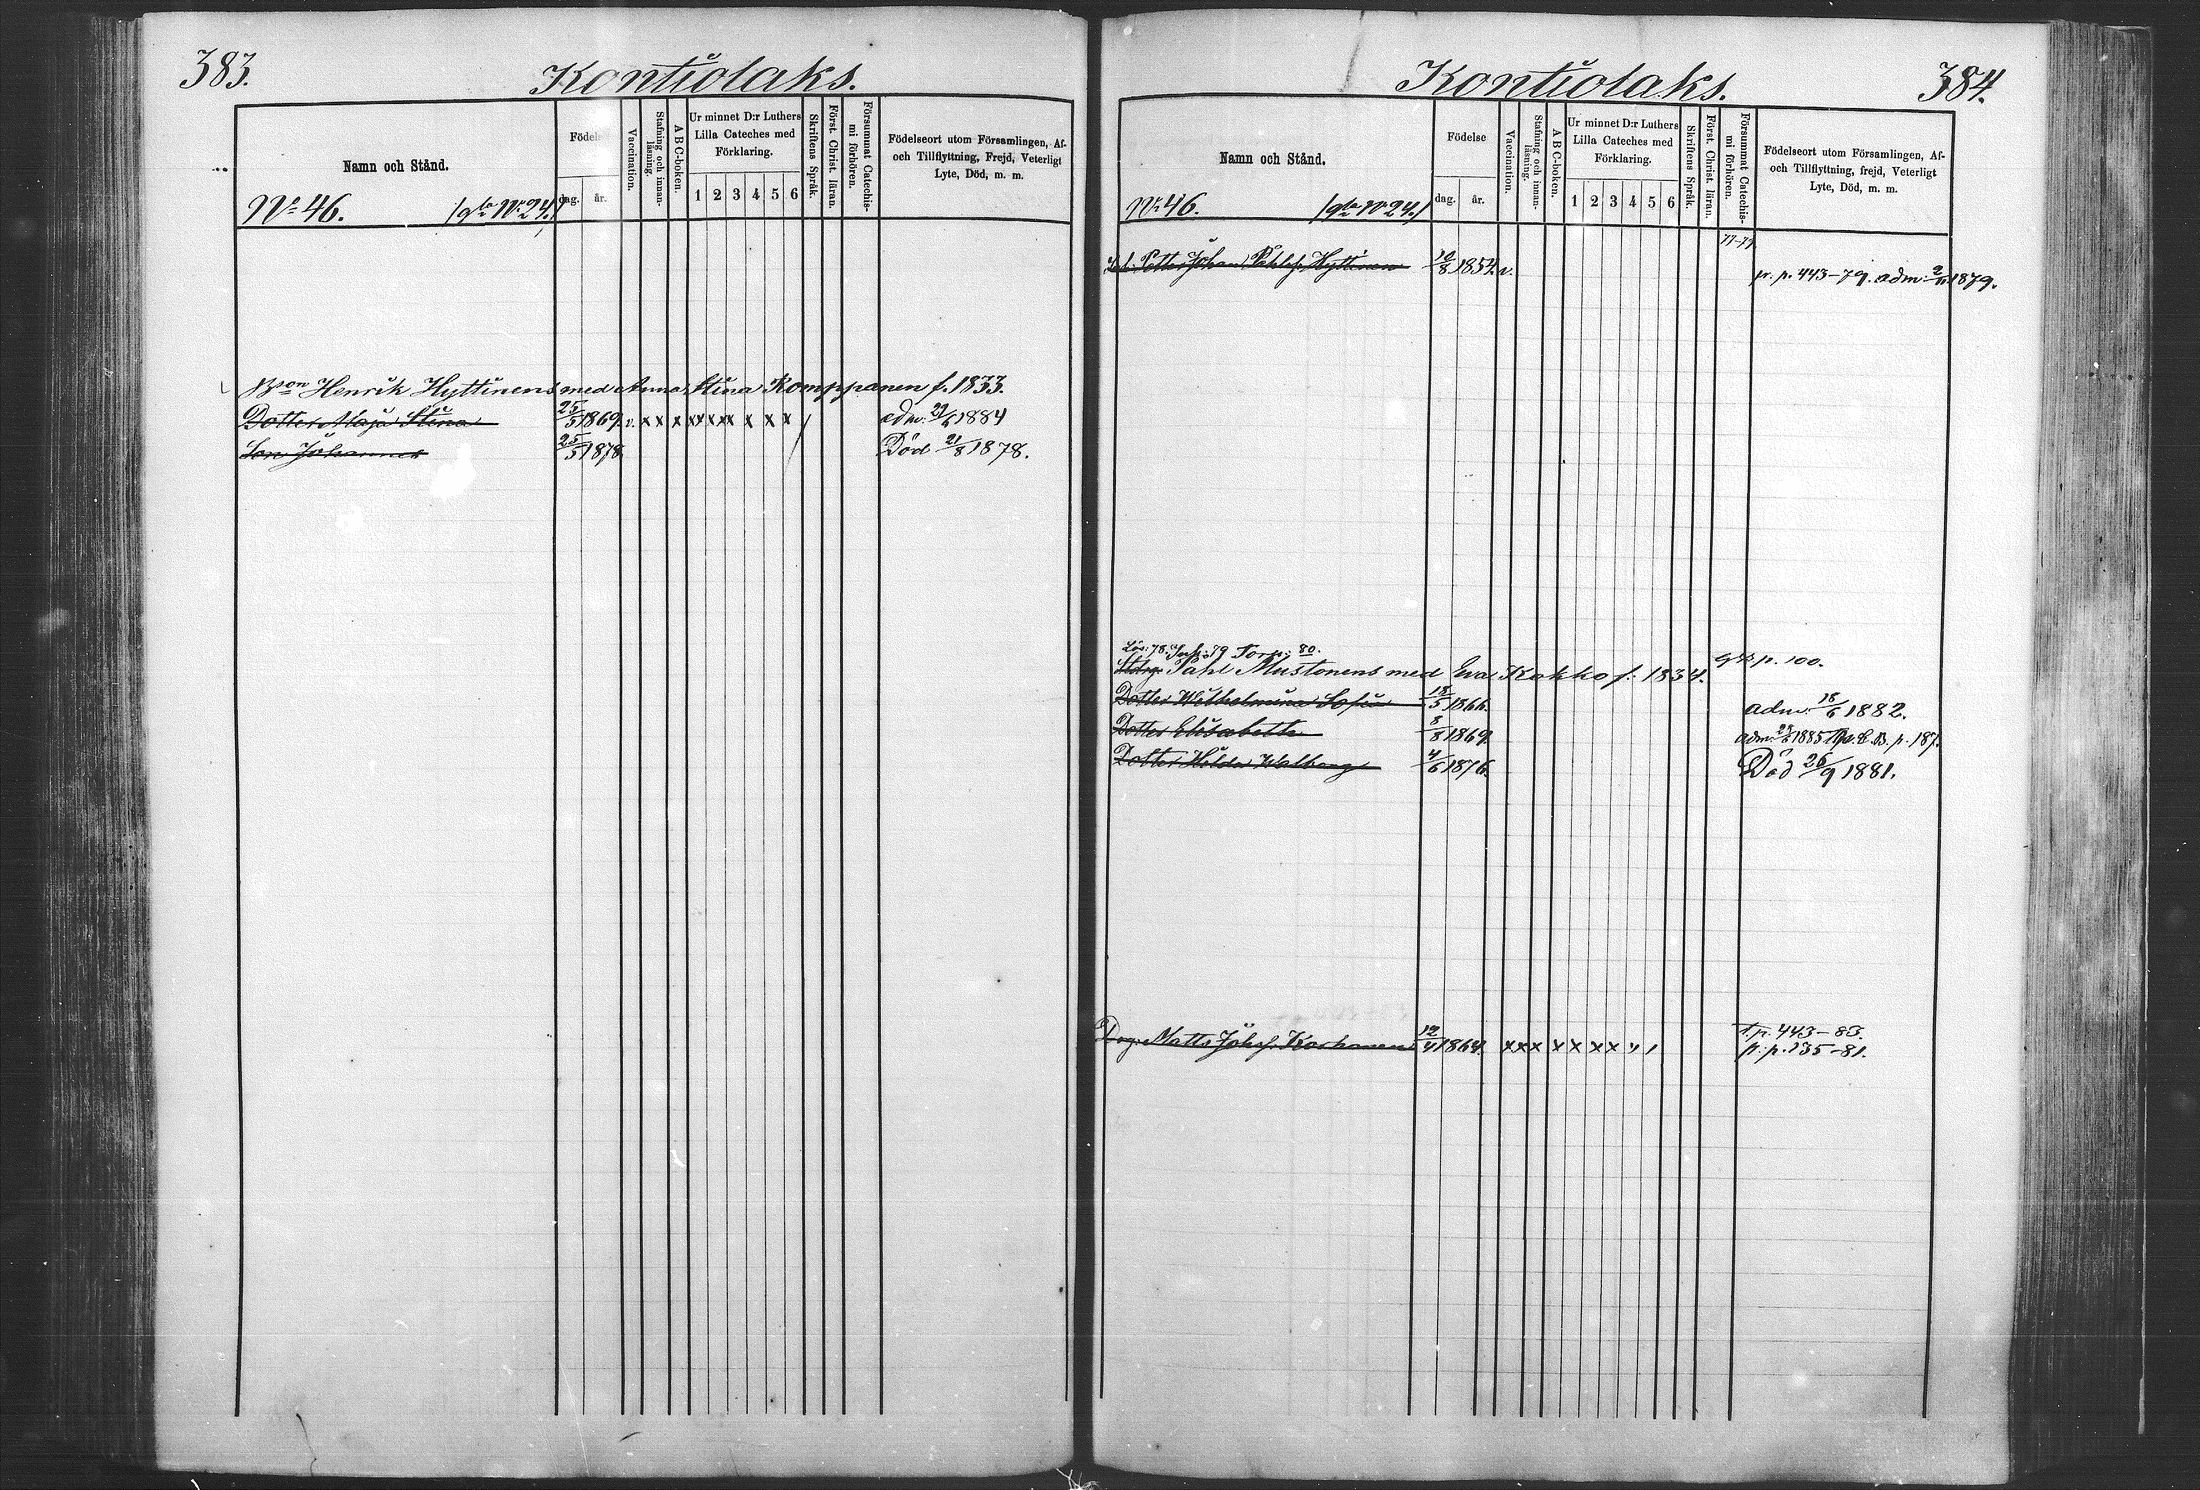 383.
Kontiolaks.
Namn och Stånd.
Födelse
dag.
år.
Vaccination.
Stafning och innan-
läsning.
A B C-boken.
Ur minnet D:r Luthers
Lilla Cateches med
Förklaring.
1 2 3 4 5 6
Skriftens Språk.
Först. Christ. läran.
Försummat Catechis-
mi förhören.
Födelseort utom Församlingen, Af-
och Tillflyttning, Frejd, Veterligt
Lyte, Död, m. m.
No 46.
/gla No 24./
Bson Henrik Hyttinens med Anna Stina Komppanen f. 1833.
Dotter Maja Stina 25/5 1869. v. x x x x x x x x x x / adm. 29/6 1884
Son Johannes 25/5 1878. Död 21/8 1878.
Kontiolaks.
384.
Namn och Stånd.
Födelse
dag.
år.
Vaccination.
Stafning och innan-
läsning.
A B C-boken.
Ur minnet D:r Luthers
Lilla Cateches med
Förklaring.
1 2 3 4 5 6
Skriftens Språk.
Först. Christ. läran.
Försummat Catechis-
mi förhören.
Födelseort utom Församlingen, Af-
och Tillflyttning, frejd, Veterligt
Lyte, Död, m. m.
No 46.
/gla No 24./
77-79
Petter Johan Hyttinen 10/8 1854. v. fr. p. 443-79. adm. 2/11 1879.
Lös. 78. Inh. 79 Torp. 80.
Pahl Mustonens med Eva Kokko f. 1834. p. 100.
Dotter Wilhelmina Sofia 18/5 1866. adm. 18/6 1882.
Dotter Elisabeth 8/8 1869. adm. 1885 p. 187.
Dotter Hilda Walborg 4/6 1876. Död 26/9 1881.
t. p. 443-83.
Drg. Matts Johsf. Korhonen 12/4 1864. x x x x x x x fr. p. 135-81.